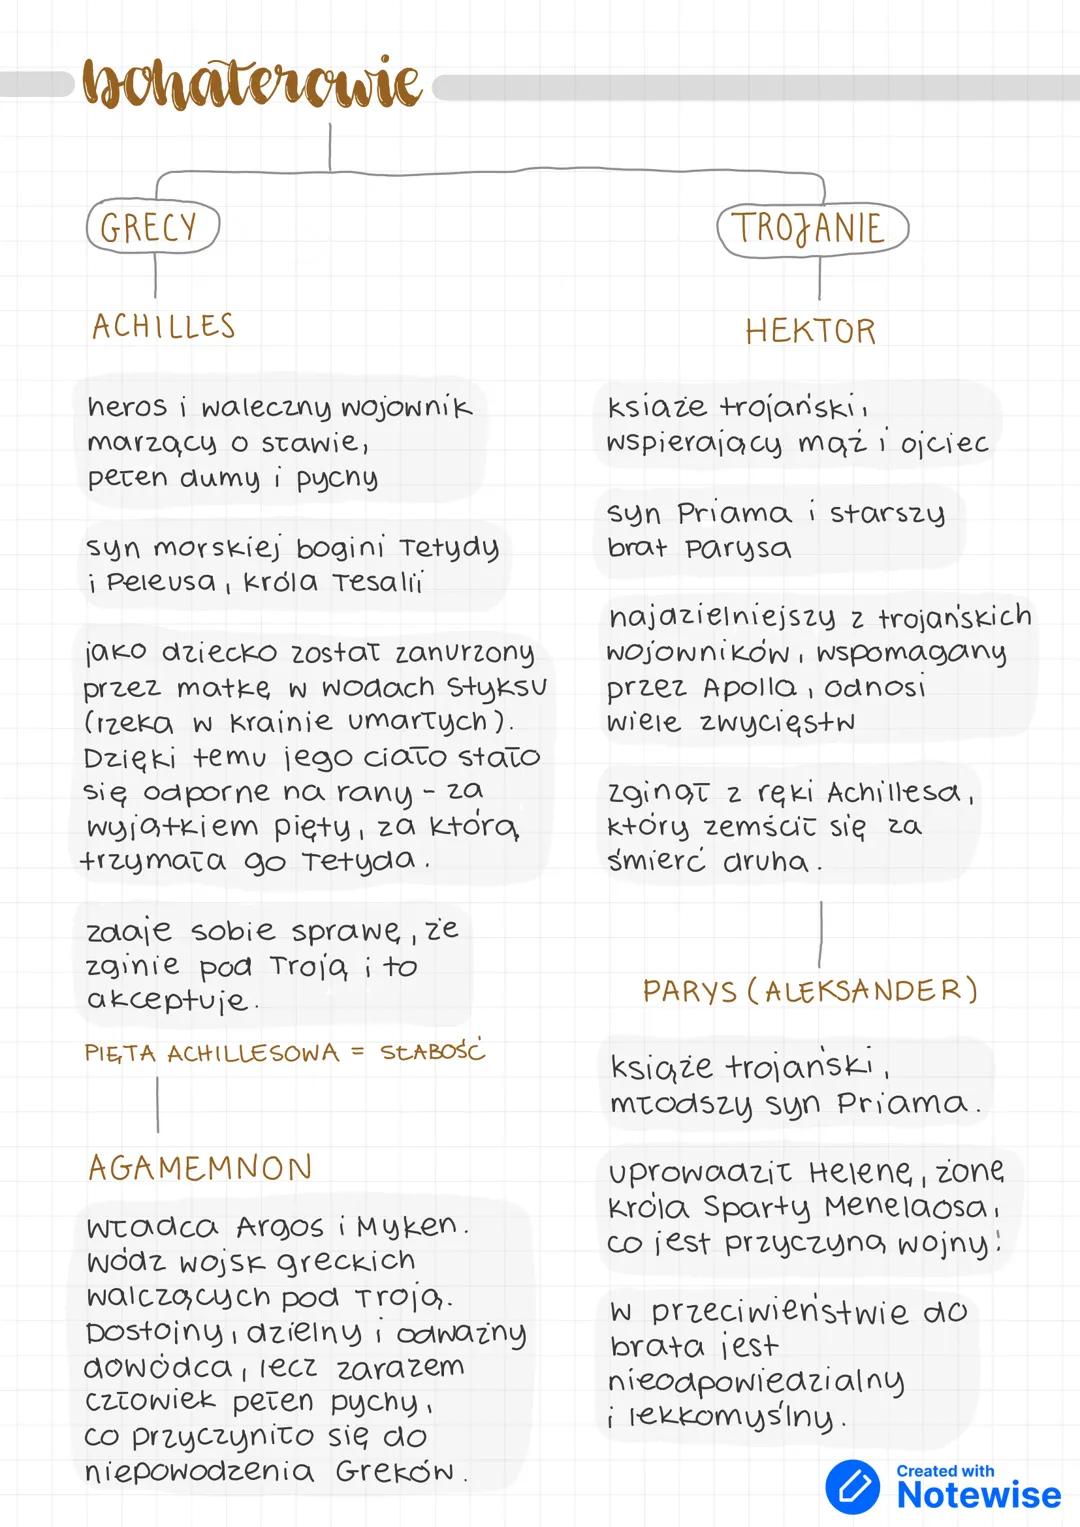 bohaterowie
GRECY
ACHILLES
heros i waleczny wojownik
marzący o sławie,
pełen dumy i pychy
syn morskiej bogini Tetydy
i Peleusa, króla Tesalii
jako dziecko został zanurzony
przez matkę w wodach Styksu
(rzeka w krainie umarłych).
Dzięki temu jego ciało stało
się odporne na rany - za
wyjątkiem pięty, za którą
trzymała go Tetyda.
zdaje sobie sprawę, że
zginie pod Troją i to
akceptuje.
PIĘTA ACHILLESOWA = SŁABOŚĆ
AGAMEMNON
władca Argos i Myken.
Wódz wojsk greckich
walczących pod Troją.
Dostojny, dzielny i odważny
dowódca, lecz zarazem
człowiek pełen pychy,
co przyczyniło się do
niepowodzenia Greków.
TROJANIE
HEKTOR
książe trojański,
wspierający mąż i ojciec
syn Priama i starszy
brat Parysa
najdzielniejszy z trojańskich
wojowników, wspomagany
przez Apolla, odnosi
wiele zwycięstw
zginął z ręki Achillesa,
który zemścił się za
śmierć druha.
PARYS (ALEKSANDER)
książe trojański,
młodszy syn Priama.
uprowadził Helenę, żonę
króla Sparty Menelaosa,
co jest przyczyną wojny!
w przeciwieństwie do
brata jest
nieodpowiedzialny
i lekkomyślny.
Created with
Notewise